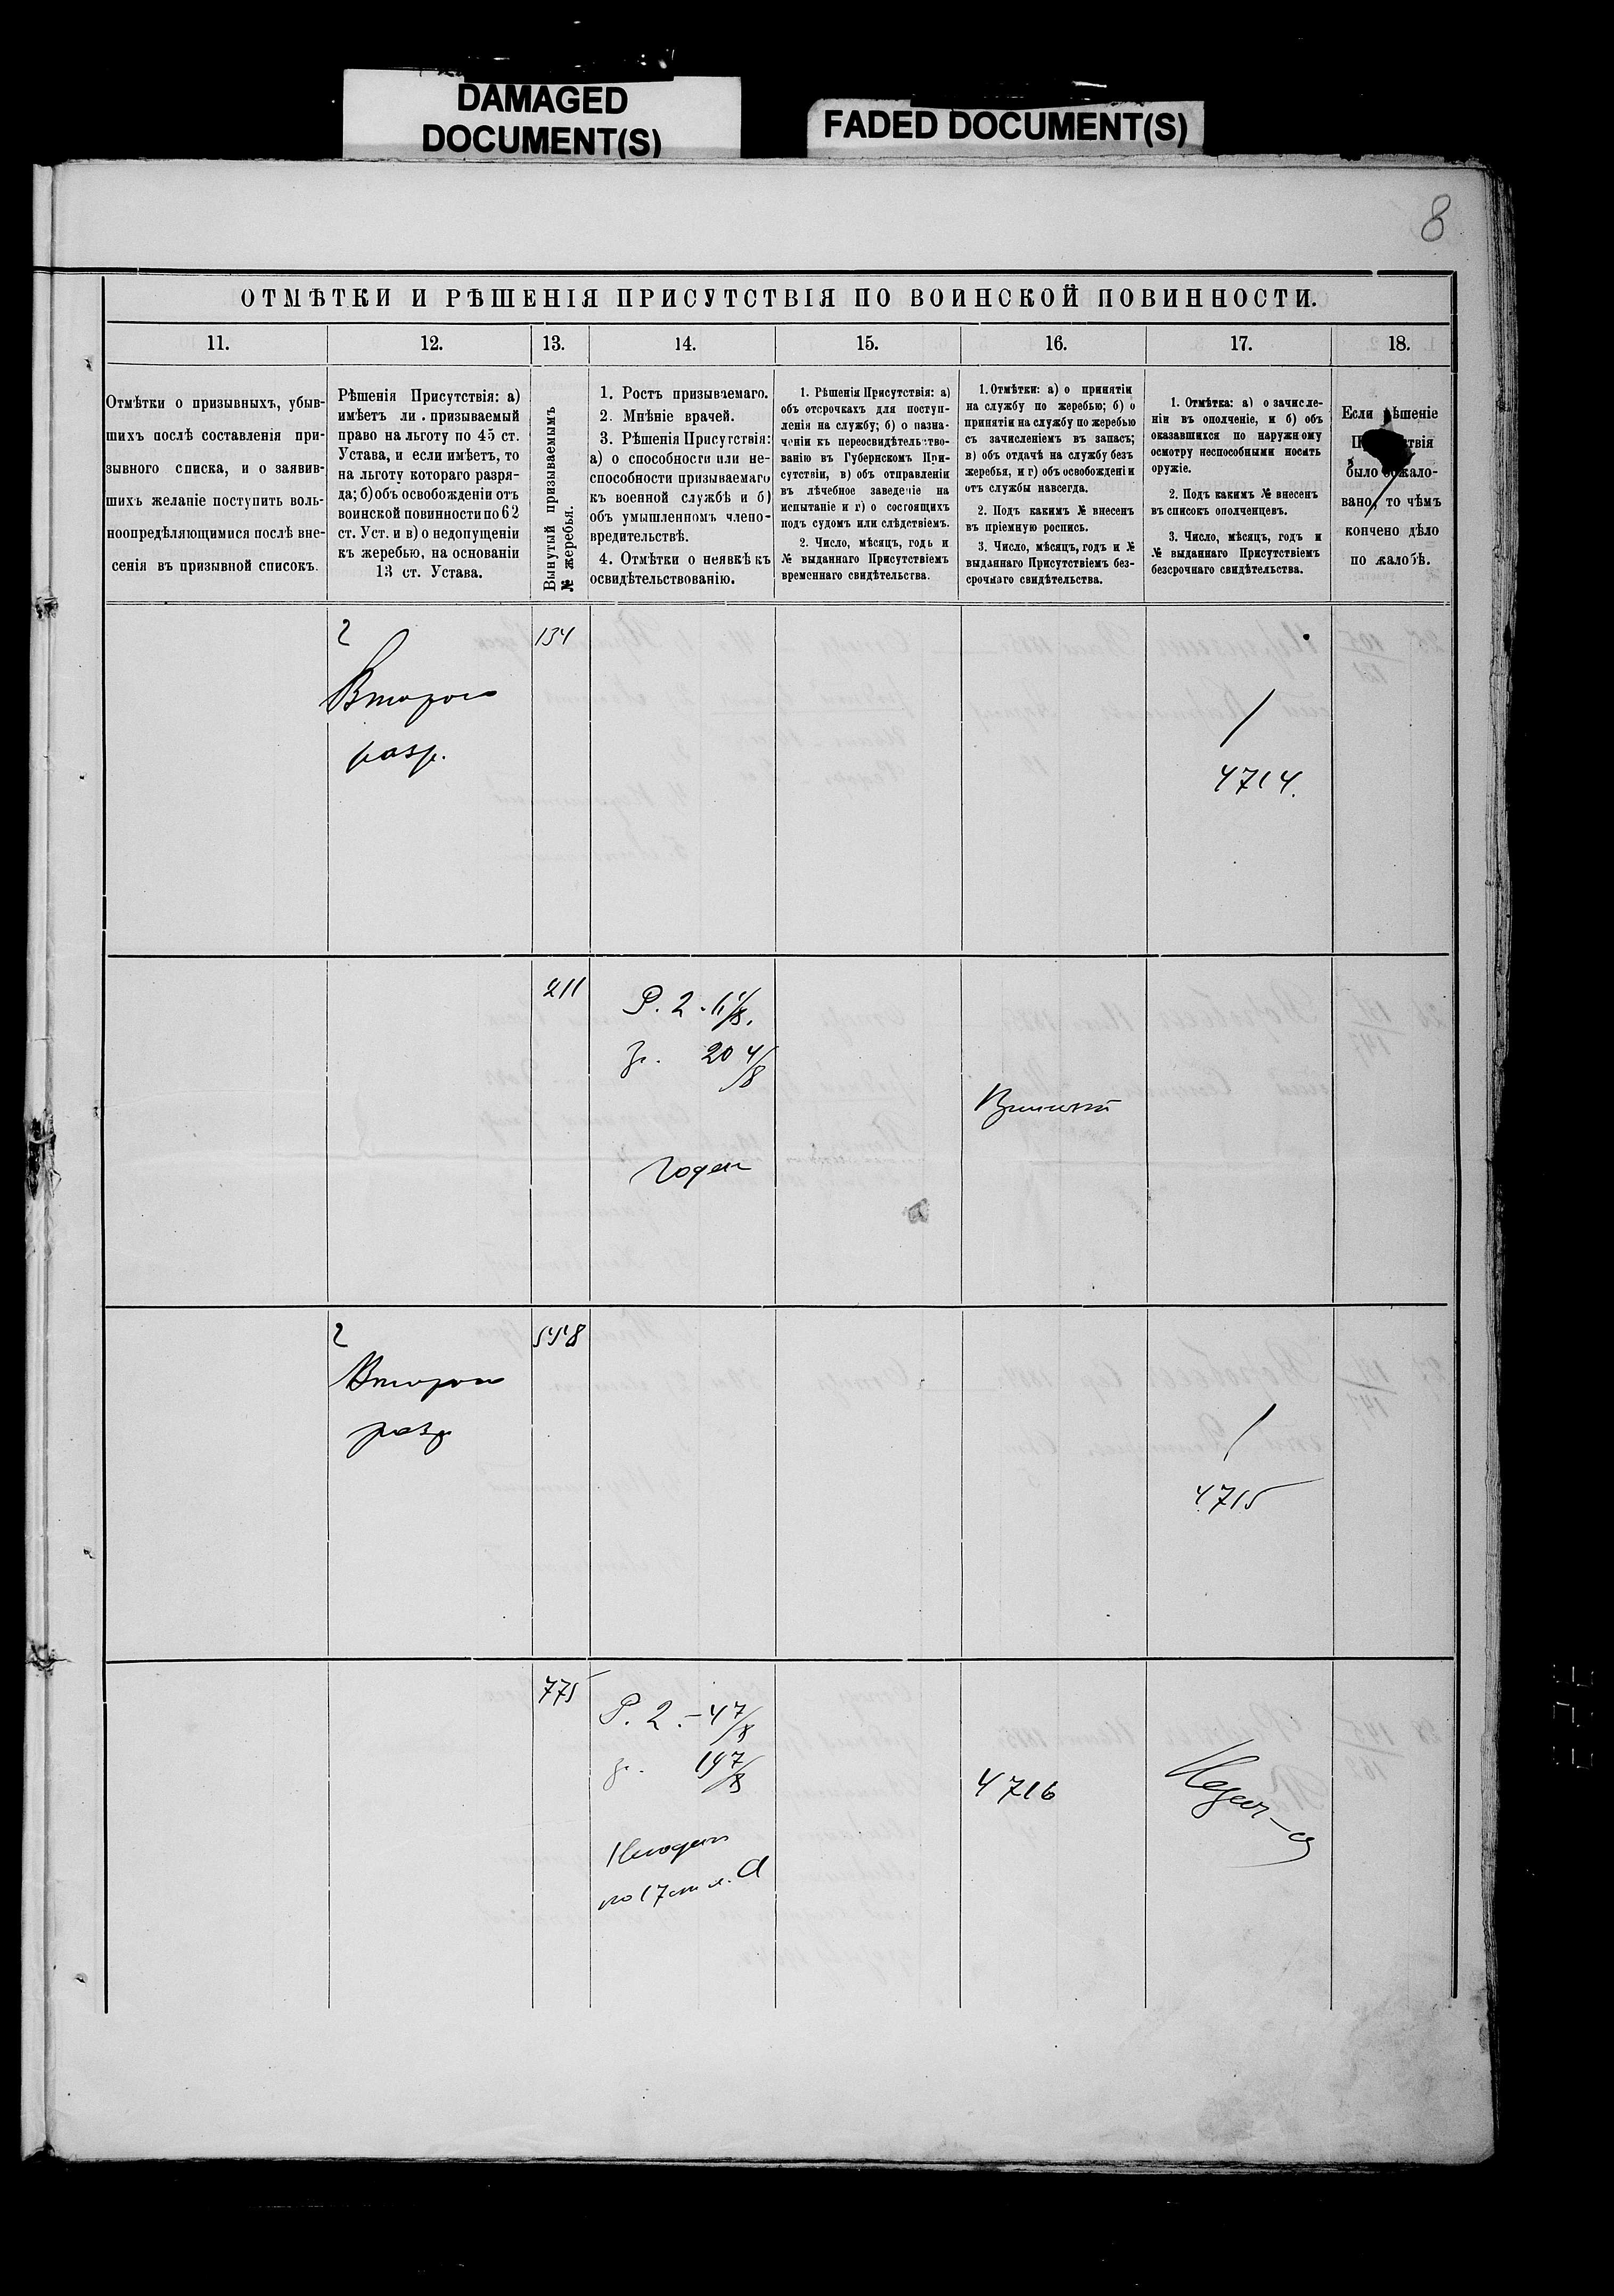 DAMAGED
DOCUMENT(S)
FADED DOCUMENT(S)
8
ОТМѢТКИ И РѢШЕНІЯ ПРИСУТСТВІЯ ПО ВОИНСКОЙ ПОВИННОСТИ.
11.
12.
13.
14.
15.
16.
17.
18.
Отмѣтки о призывныхъ, убыв-
шихъ послѣ составленія при-
зывного списка, и о заявив-
шихъ желаніе поступить воль-
ноопредѣляющимися послѣ вне-
сенія въ призывной списокъ.
Рѣшенія Присутствія: а)
имѣетъ ли призываемый
право на льготу по 45 ст.
Устава, и если имѣетъ, то
на льготу котораго разря-
да; б) объ освобожденіи отъ
воинской повинности по 62
ст. Уст. и в) о недопущеніи
къ жеребью, на основаніи
13 ст. Устава.
Вынутый призываемымъ
№ жеребья.
1. Ростъ призываемаго.
2. Мнѣніе врачей.
3. Рѣшенія Присутствія:
а) о способности или не-
способности призываемаго
къ военной службѣ и б)
объ умышленномъ члено-
вредительствѣ.
4. Отмѣтки о неявкѣ къ
освидѣтельствованію.
1. Рѣшенія Присутствія: а)
объ отсрочкахъ для поступ-
ленія на службу; б) о назна-
ченіи къ переосвидѣтельство-
ванію въ Губернскомъ При-
сутствіи, в) объ отправленіи
въ лѣчебное заведеніе на
испытаніе и г) о состоящихъ
подъ судомъ или слѣдствіемъ.
2. Число, мѣсяцъ, годъ и
№ выданнаго Присутствіемъ
временнаго свидѣтельства.
1. Отмѣтки: а) о принятіи
на службу по жеребью; б) о
принятіи на службу по жеребью
съ зачисленіемъ въ запасъ;
в) объ отдачѣ на службу безъ
жеребья, и г) объ освобожденіи
отъ службы навсегда.
2. Подъ какимъ № внесенъ
въ пріемную роспись.
3. Число, мѣсяцъ, годъ и №
выданнаго Присутствіемъ без-
срочнаго свидѣтельства.
1. Отмѣтка: а) о зачисле-
ніи въ ополченіе, и б) объ
оказавшихся по наружному
осмотру неспособными носить
оружіе.
2. Подъ какимъ № внесенъ
въ списокъ ополченцевъ.
3. Число, мѣсяцъ, годъ и
№ выданнаго Присутствіемъ
безсрочнаго свидѣтельства.
Если рѣшеніе
было обжало-
вано, то чѣмъ
кончено дѣло
по жалобѣ.
2
Второго
разр.
134
/
4714.
211
Р. 2.
20 4/8
Годен
2
Второго
разр
558
/
4715
775
Р. 2. – 4 7/8
19 7/8
Негоден
по 17 ст л. А
4716